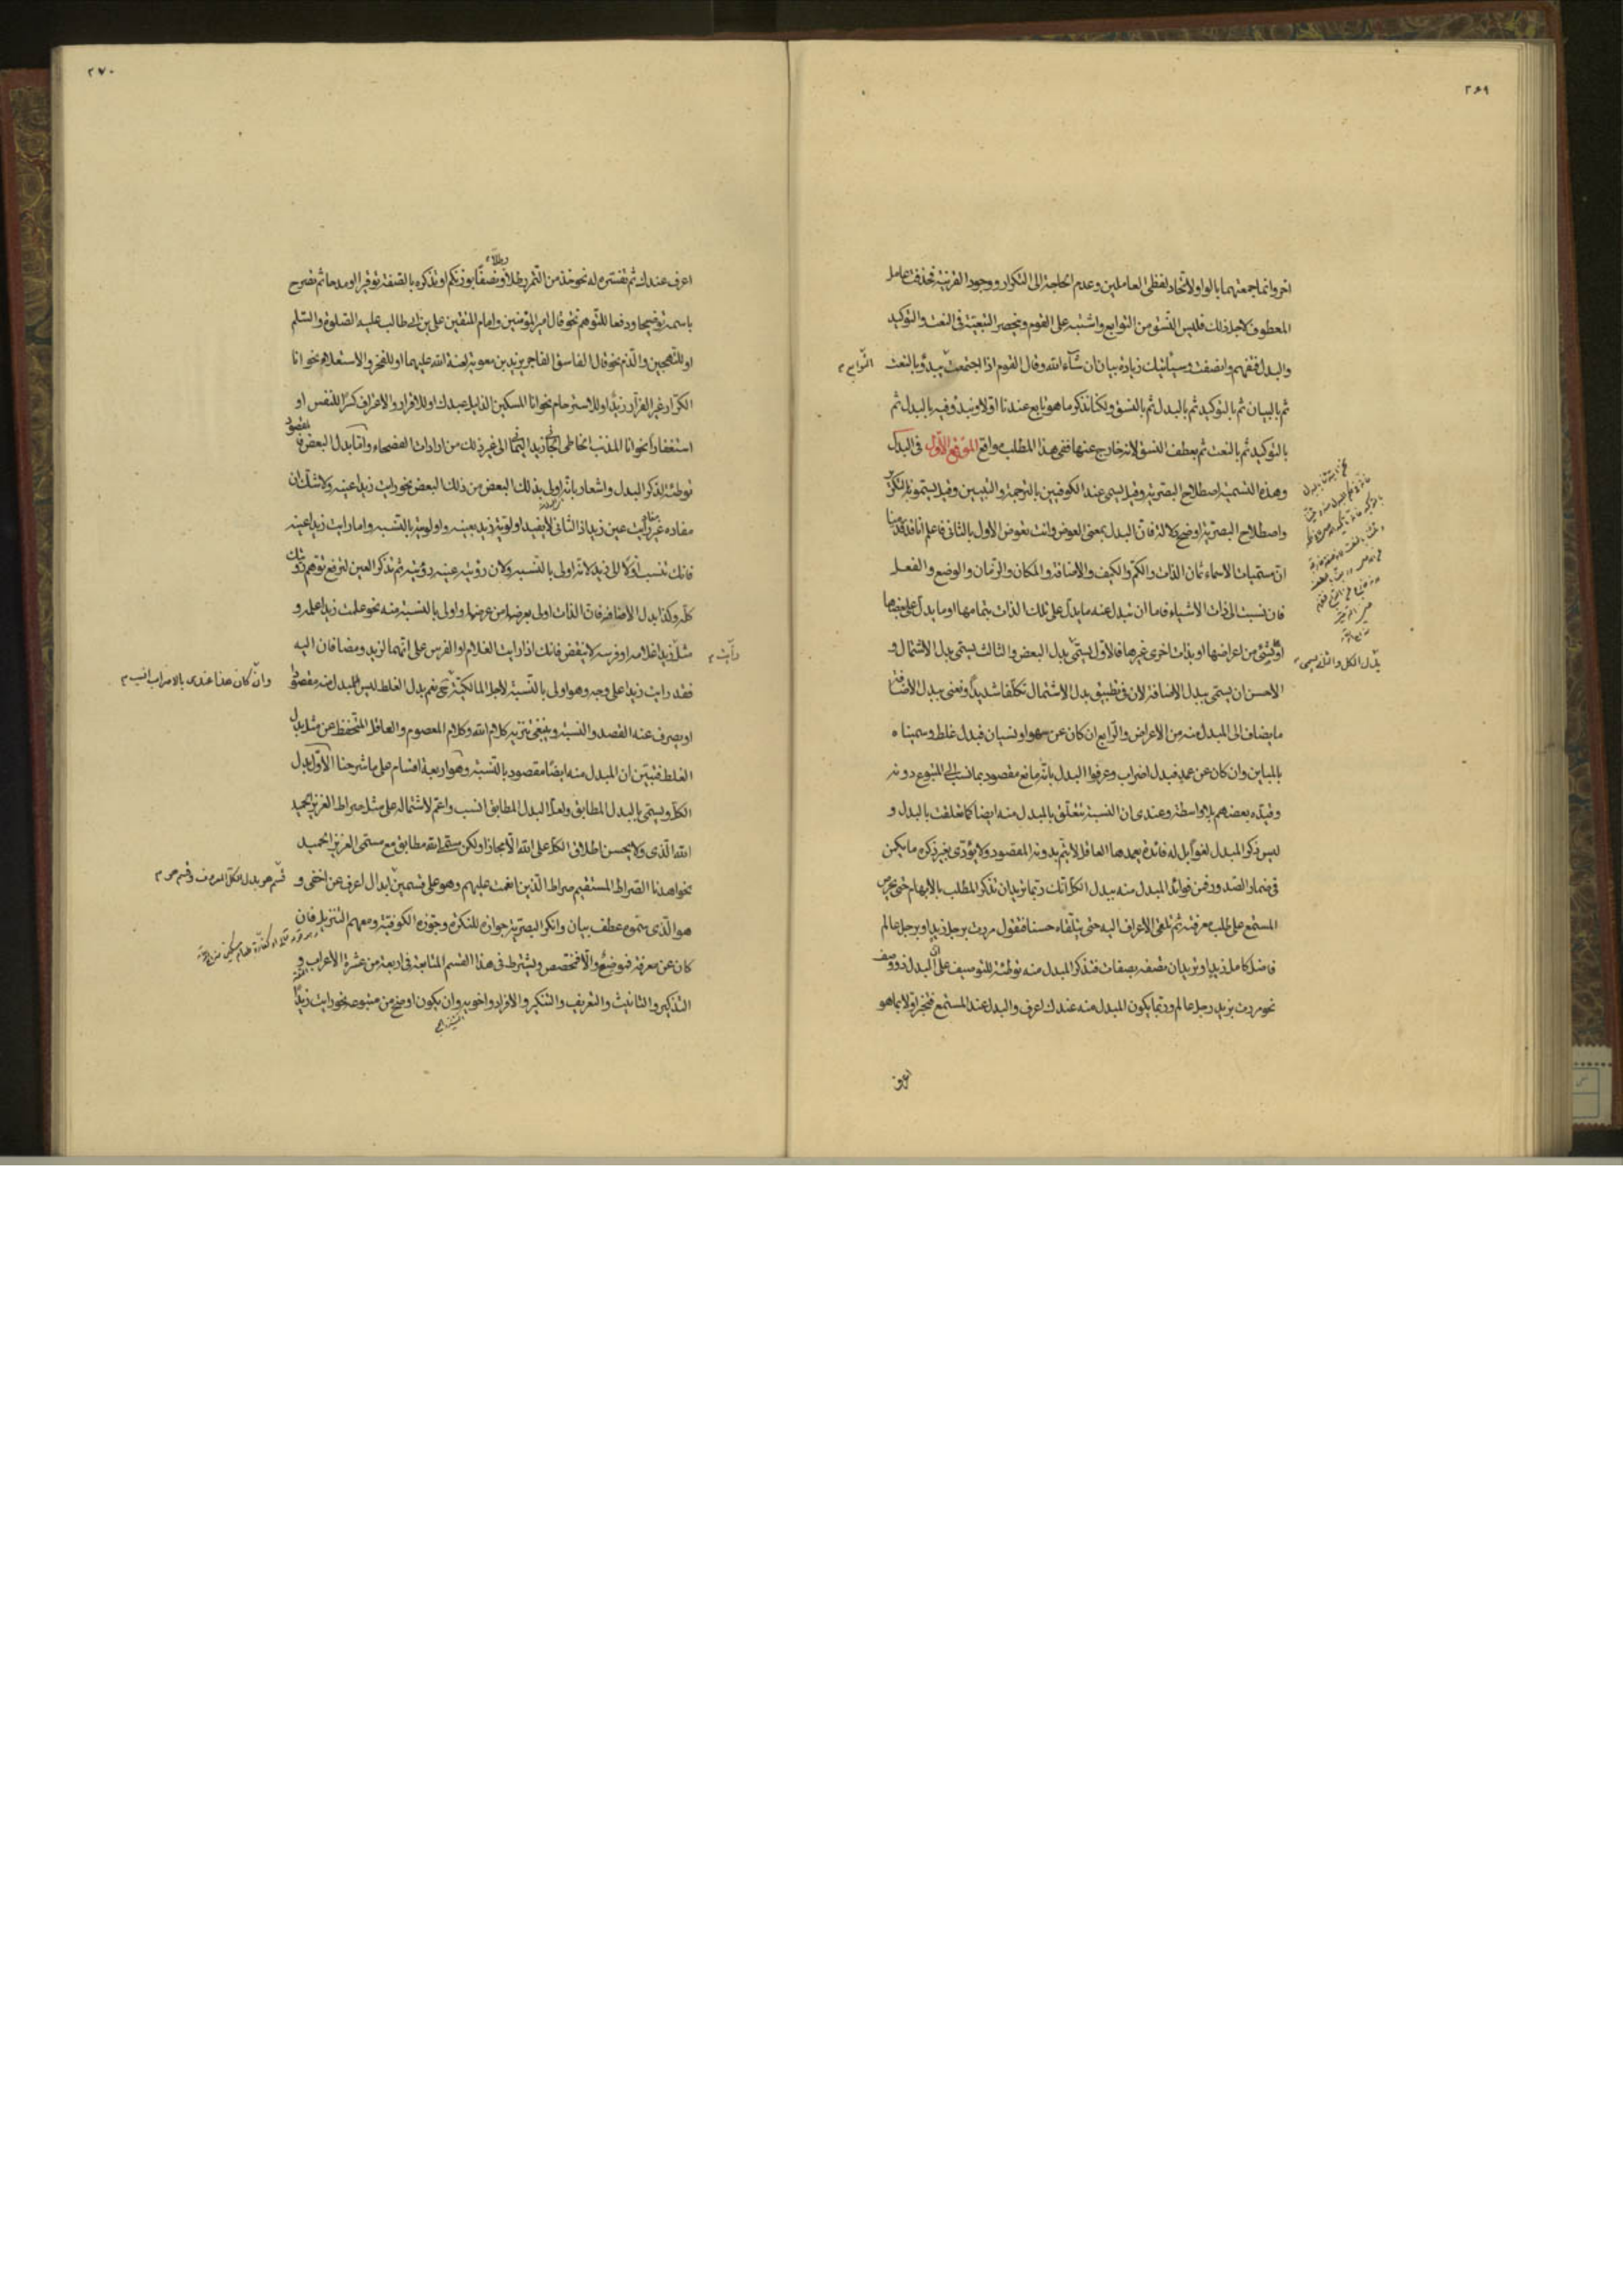 ٢٦٩
اخر وانما جمعتهما بالواو لاتحاد لفظى العاملين وعدم الحاجة الى التكرار ووجود القرينة فحذفت عامل
المعطوف لاجل ذلك فليس النسق من التوابع واشتبه على القوم وينحصر التبعية فى النعت والتوكيد
والبدل فتفهم وانصفت وسيأتيك زيادة بيان ان شاء الله وقال القوم اذا اجتمعت يبدؤ بالنعت
التوابع
ثم بالبيان ثم بالتوكيد ثم بالبدل ثم بالنسق ولكنا نذكر ما هو تابع عندنا اولا ونبدؤ فيه بالبدل ثم
بالتوكيد ثم بالنعت ثم بعطف النسق لانه خارج عنها ففى هذا المطلب مواقع الموقع الاول فى البدل
وهذه التسمية اصطلاح البصرية وقيل يسمى عند الكوفيين بالترجمة والتبيين وقيل يسمونه بالتكرير
واصطلاح البصرية اوضح دلالة فان البدل بمعنى العوض وانت تعوض الاول بالثانى فاعلم انا قد قدمنا
ان مسميات الاسماء ثمان الذات والكم والكيف والاضافة والمكان والزمان والوضع والفعل
فان نسبت الى ذات الاشياء فاما ان تبدل عنه ما يدل على تلك الذات بتمامها او ما يدل على بعضها
او لشئ من اعراضها او بذات اخرى غيرها فالاول يسمى بدل البعض والثالث يسمى بدل الاشتمال و
بدل الكل والثانى يسمى
الاحسن ان يسمى ببدل الاضافة لان فى تطبيق بدل الاشتمال تكلفا شديدا ونعنى ببدل الاضافة
ما يضاف الى المبدل منه من الاعراض والرابع ان كان عن سهو او نسيان فبدل غلط وسميناه
بالمباين وان كان عن عمد فبدل اضراب وعرفوا البدل بانه تابع مقصود بما نسب الى المتبوع دونه
وقيده بعضهم بلا واسطة وعندى ان النسبة تتعلق بالمبدل منه ايضا كما تعلقت بالبدل و
ليس ذكر المبدل لغوا بل له فائدة يعمدها العاقل لا يتم بدونه المقصود ولا يؤدى بغير ذكره ما يكمن
فى ضمار الصدور فمن فوائد المبدل منه ببدل الكل انك ربما تريد ان تذكر المطلب بالابهام حتى يحرص
المستمع على طلب معرفته ثم تلقى الاعراف اليه حتى يتلقاه حسنا فتقول مررت برجل زيد او برجل عالم
فاضل كامل زيد او تريد ان تصفه بصفات فتذكر المبدل منه توطئة للتوصيف على ان البدل ذو وصف
نحو مررت بزيد رجل عالم وربما يكون المبدل منه عندك اعرف والبدل عند المستمع فتخبر اولا بما هو
اعرف
٢٧٠
اعرف عندك ثم تفسره له نحو خذ من التمر رطلا ونصفا بوزنكم او تذكره بالصفة توقيرا او مدحا ثم تصرح
باسمه توضيحا ودفعا للتوهم نحو قال امير المؤمنين وامام المتقين على بن ابى طالب عليه الصلوة والسلم
او للتهجين والذم نحو قال الفاسق الفاجر يزيد بن معوية لعنة الله عليهما او للفخر والاستعلاء نحو انا
الكرار غير الفرار زيد او للاسترحام نحو انا المسكين الذليل عبدك او للاقرار والاعتراف كسرا للنفس او
استغفارا نحو انا المذنب الخاطى زيد الى غير ذلك من ارادات الفصحاء واما بدل البعض فمقصود
توطئة لذكر البدل واشعار بانه اولى بذلك البعض من ذلك البعض نحو رايت زيدا عينه ولا شك ان
مفاده غير رايت عين زيد اذ الثانى لا يفيد اولوية زيد بعينه واولويته بالنسبة واما رايت زيدا عينه
فانك تنسب اولا الى زيد لانه اولى بالنسبة ولان رؤية عينه رؤيته ثم تذكر العين لترفع توهم رؤيتك
كله وكذا بدل الاضافة فان الذات اولى بعرضها من عرضها واولى بالنسبة منه نحو علمت زيدا علمه و
مثل زيدا غلامه او فرسه لا ينقض فانك اذا رايت الغلام او الفرس على انهما لزيد ومضافان اليه
رايت
فقد رايت زيدا على وجه وهو اولى بالنسبة لاجل المالكية نعم بدل الغلط ليس المبدل منه مقصودا
وان كان هذا عندى بالاضراب انسب
او يصرف عنه القصد والنسبة وينبغى تنزيه كلام الله وكلام المعصوم والعاقل المتحفظ عن مثل بدل
الغلط فتبين ان المبدل منه ايضا مقصود بالنسبة وهو اربعة اقسام على ما شرحنا الاول بدل
الكل ويسمى بالبدل المطابق ولعل البدل المطابق انسب واعم لاشتماله على مثل صراط العزيز الحميد
الله الذى ولا يحسن اطلاق الكل على الله الا مجازا ولكن مسمى الله مطابق مع مسمى العزيز الحميد
نحو اهدنا الصراط المستقيم صراط الذين انعمت عليهم وهو على قسمين ابدال اعرف عن اخفى و
قسم هو بدل الكل المعروف وقسم هو
هو الذى سموه عطف بيان وانكر البصرية جوازه للنكرة وجوزه الكوفية ومعهم التنزيل فان
كان عن معرفة فموضح والا فمخصص ويشترط فى هذا القسم المتابعة فى اربعة من عشرة الاعراب و
التذكير والتانيث والتعريف والتنكير والافراد واخويه وان يكون اوضح من متبوعه نحو رايت زيدا